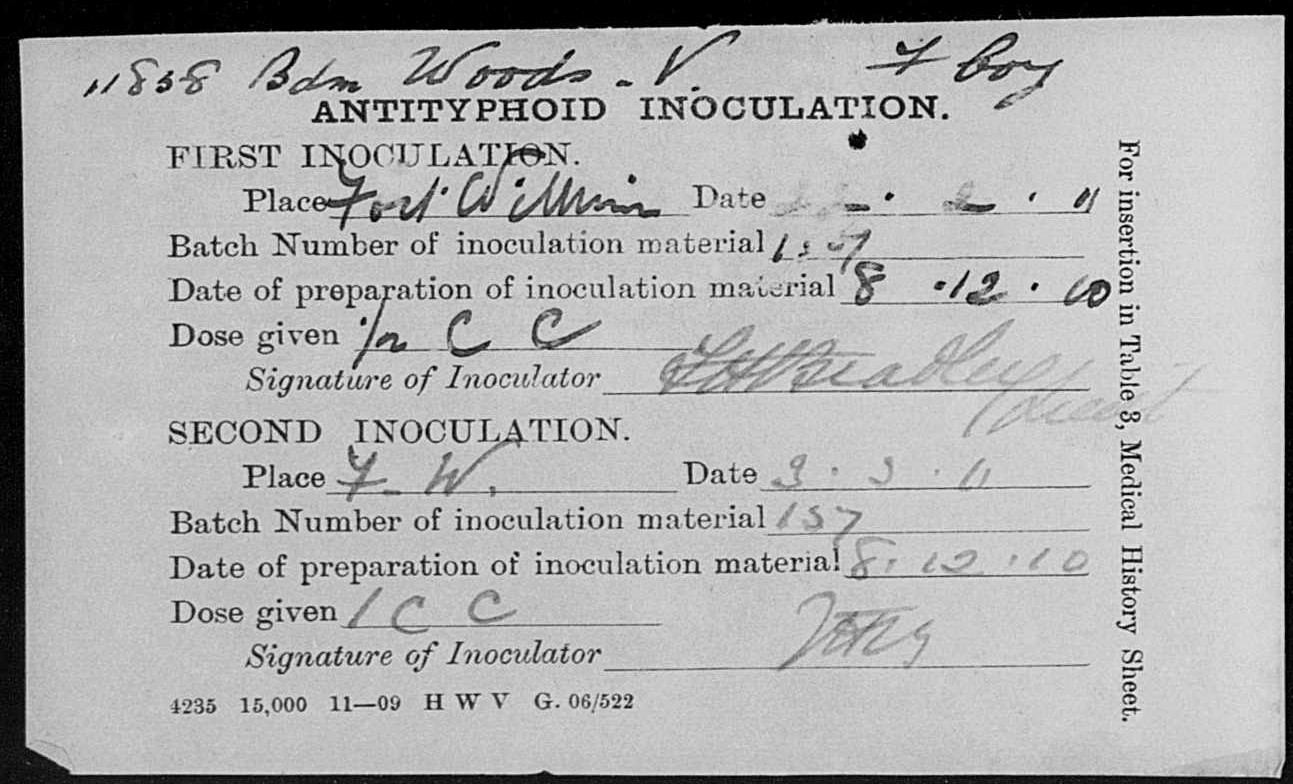 11858 Bdm Woods. V. F Coy
ANTITYPHOID INOCULATION.
FIRST INOCULATION.
Place Fort William Date 2 . 11
Batch Number of inoculation material 157
Date of preparation of inoculation material 8 . 12 . 10
Dose given 1/2 C C
Signature of Inoculator
SECOND INOCULATION.
Place F. W. Date 3 . 3 . 11
Batch Number of inoculation material 157
Date of preparation of inoculation material 8 . 12 . 10
Dose given 1 C C
Signature of Inoculator
4235 15,000 11—09 H W V G. 06/522
For insertion in Table 3, Medical History Sheet.